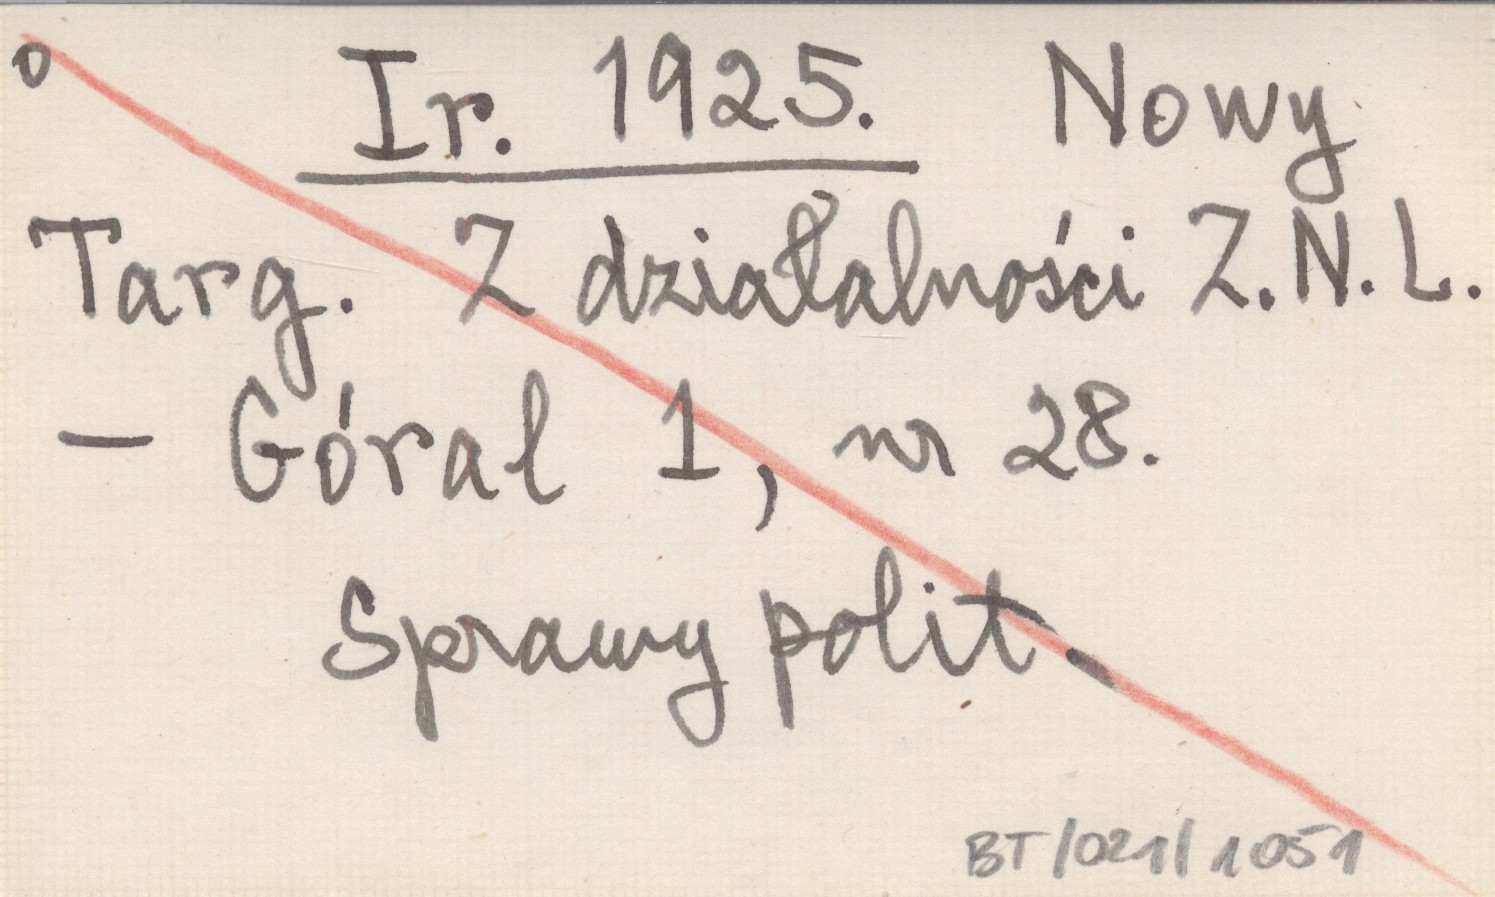 o Ir. 1925. Nowy
Targ. Z działalności Z.N.L.
– Góral 1, nr 28.
Sprawy polit.
BT/021/1051